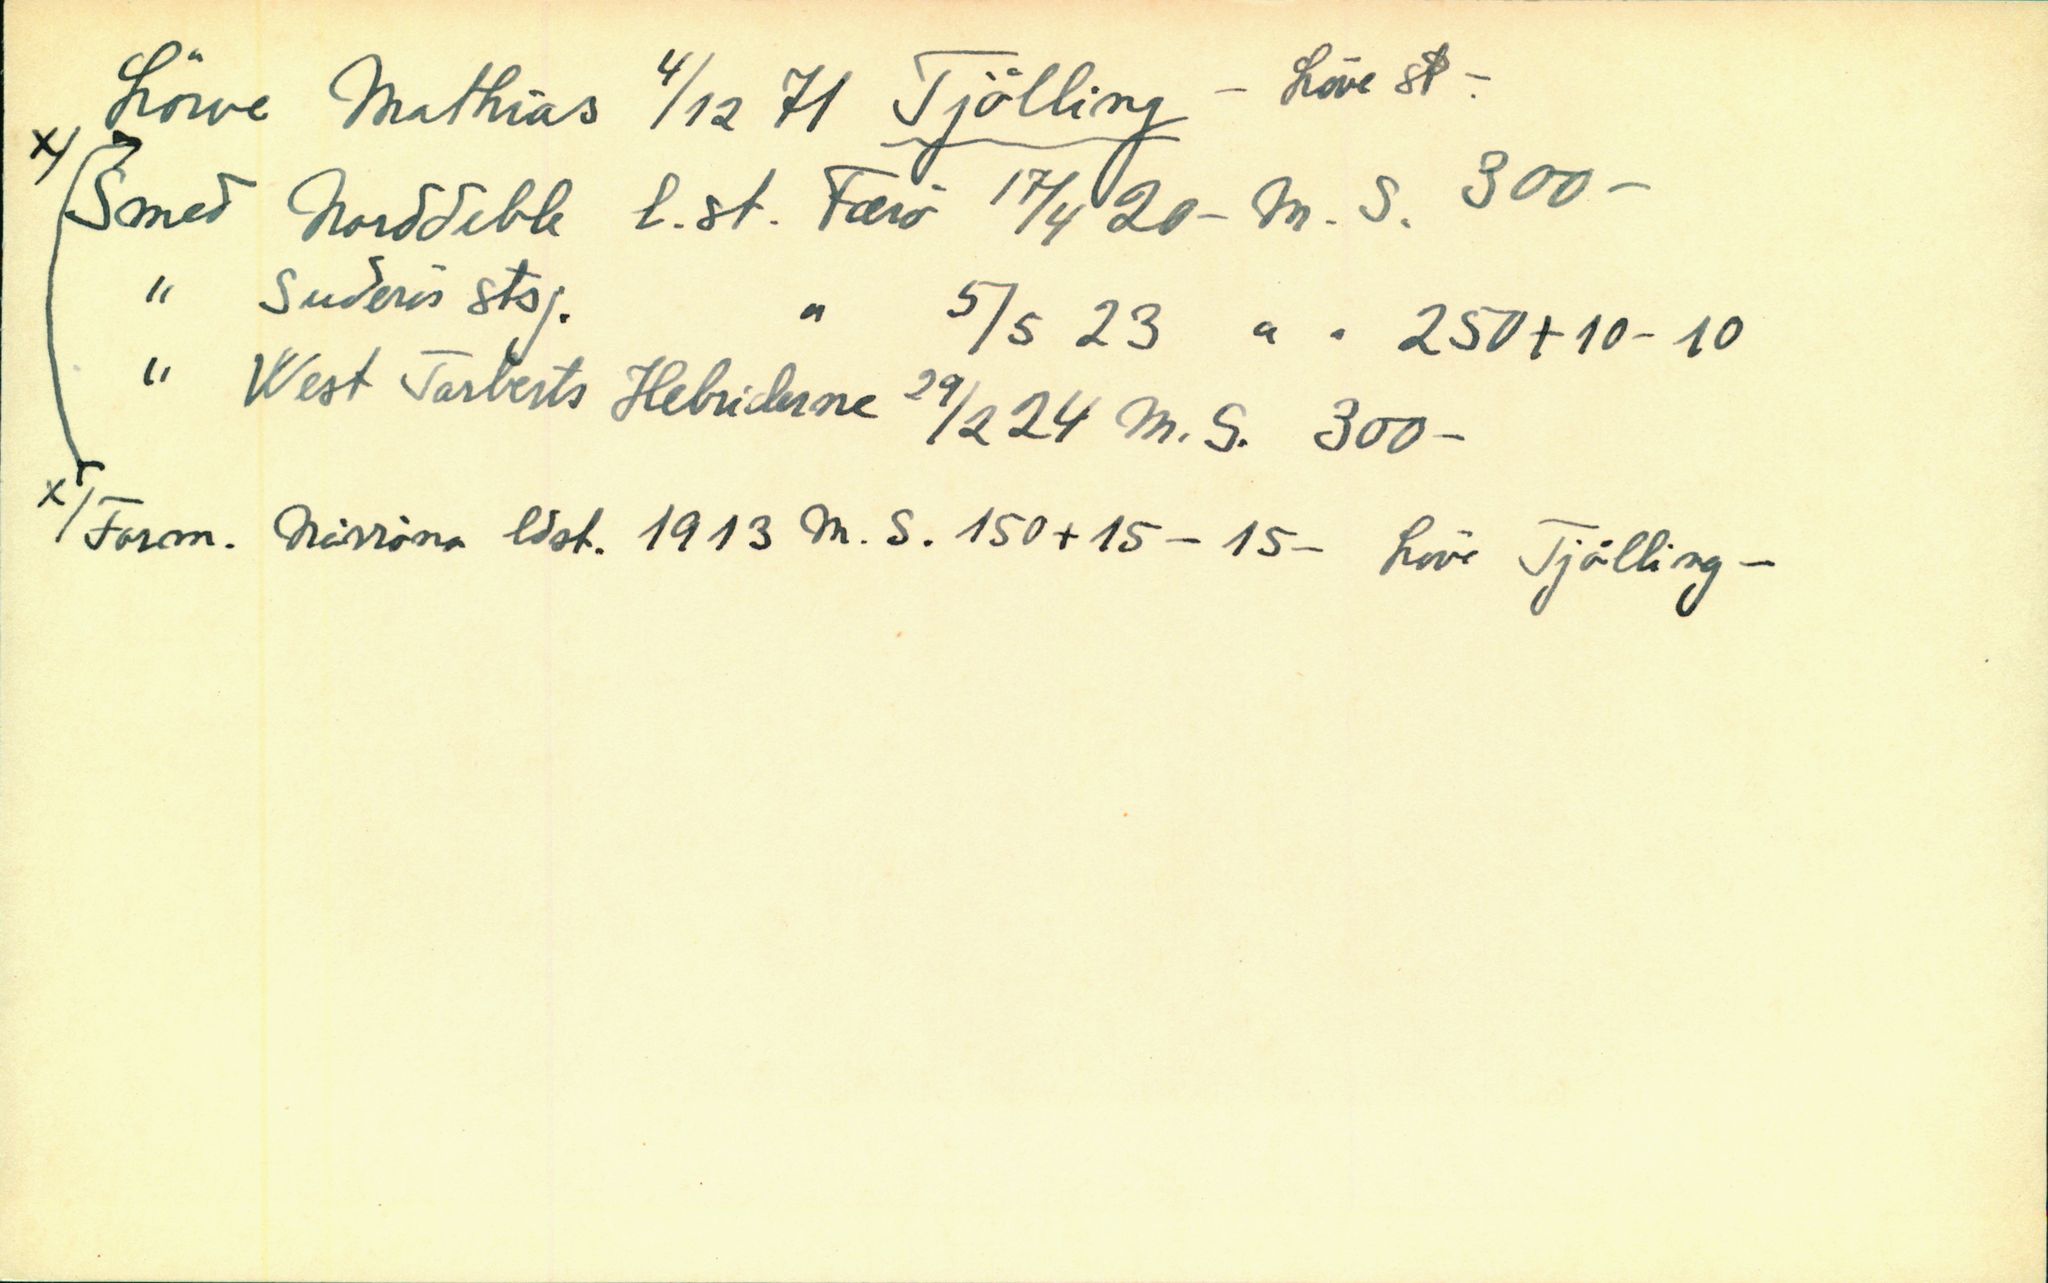 Löwe Mathias 4/12 71 Tjölling - Löve st -
x/ Smed Norddeble l.st. Færö 17/4 20 - M. S. 300 -
" Suderö stsj. " 5/5 23 " " 250 + 10 - 10
" West Tarberts Hebriderne 29/2 24 M. S. 300 -
x/ Form. Norröna ldst. 1913 M. S. 150 + 15 - 15 - Löve Tjölling -